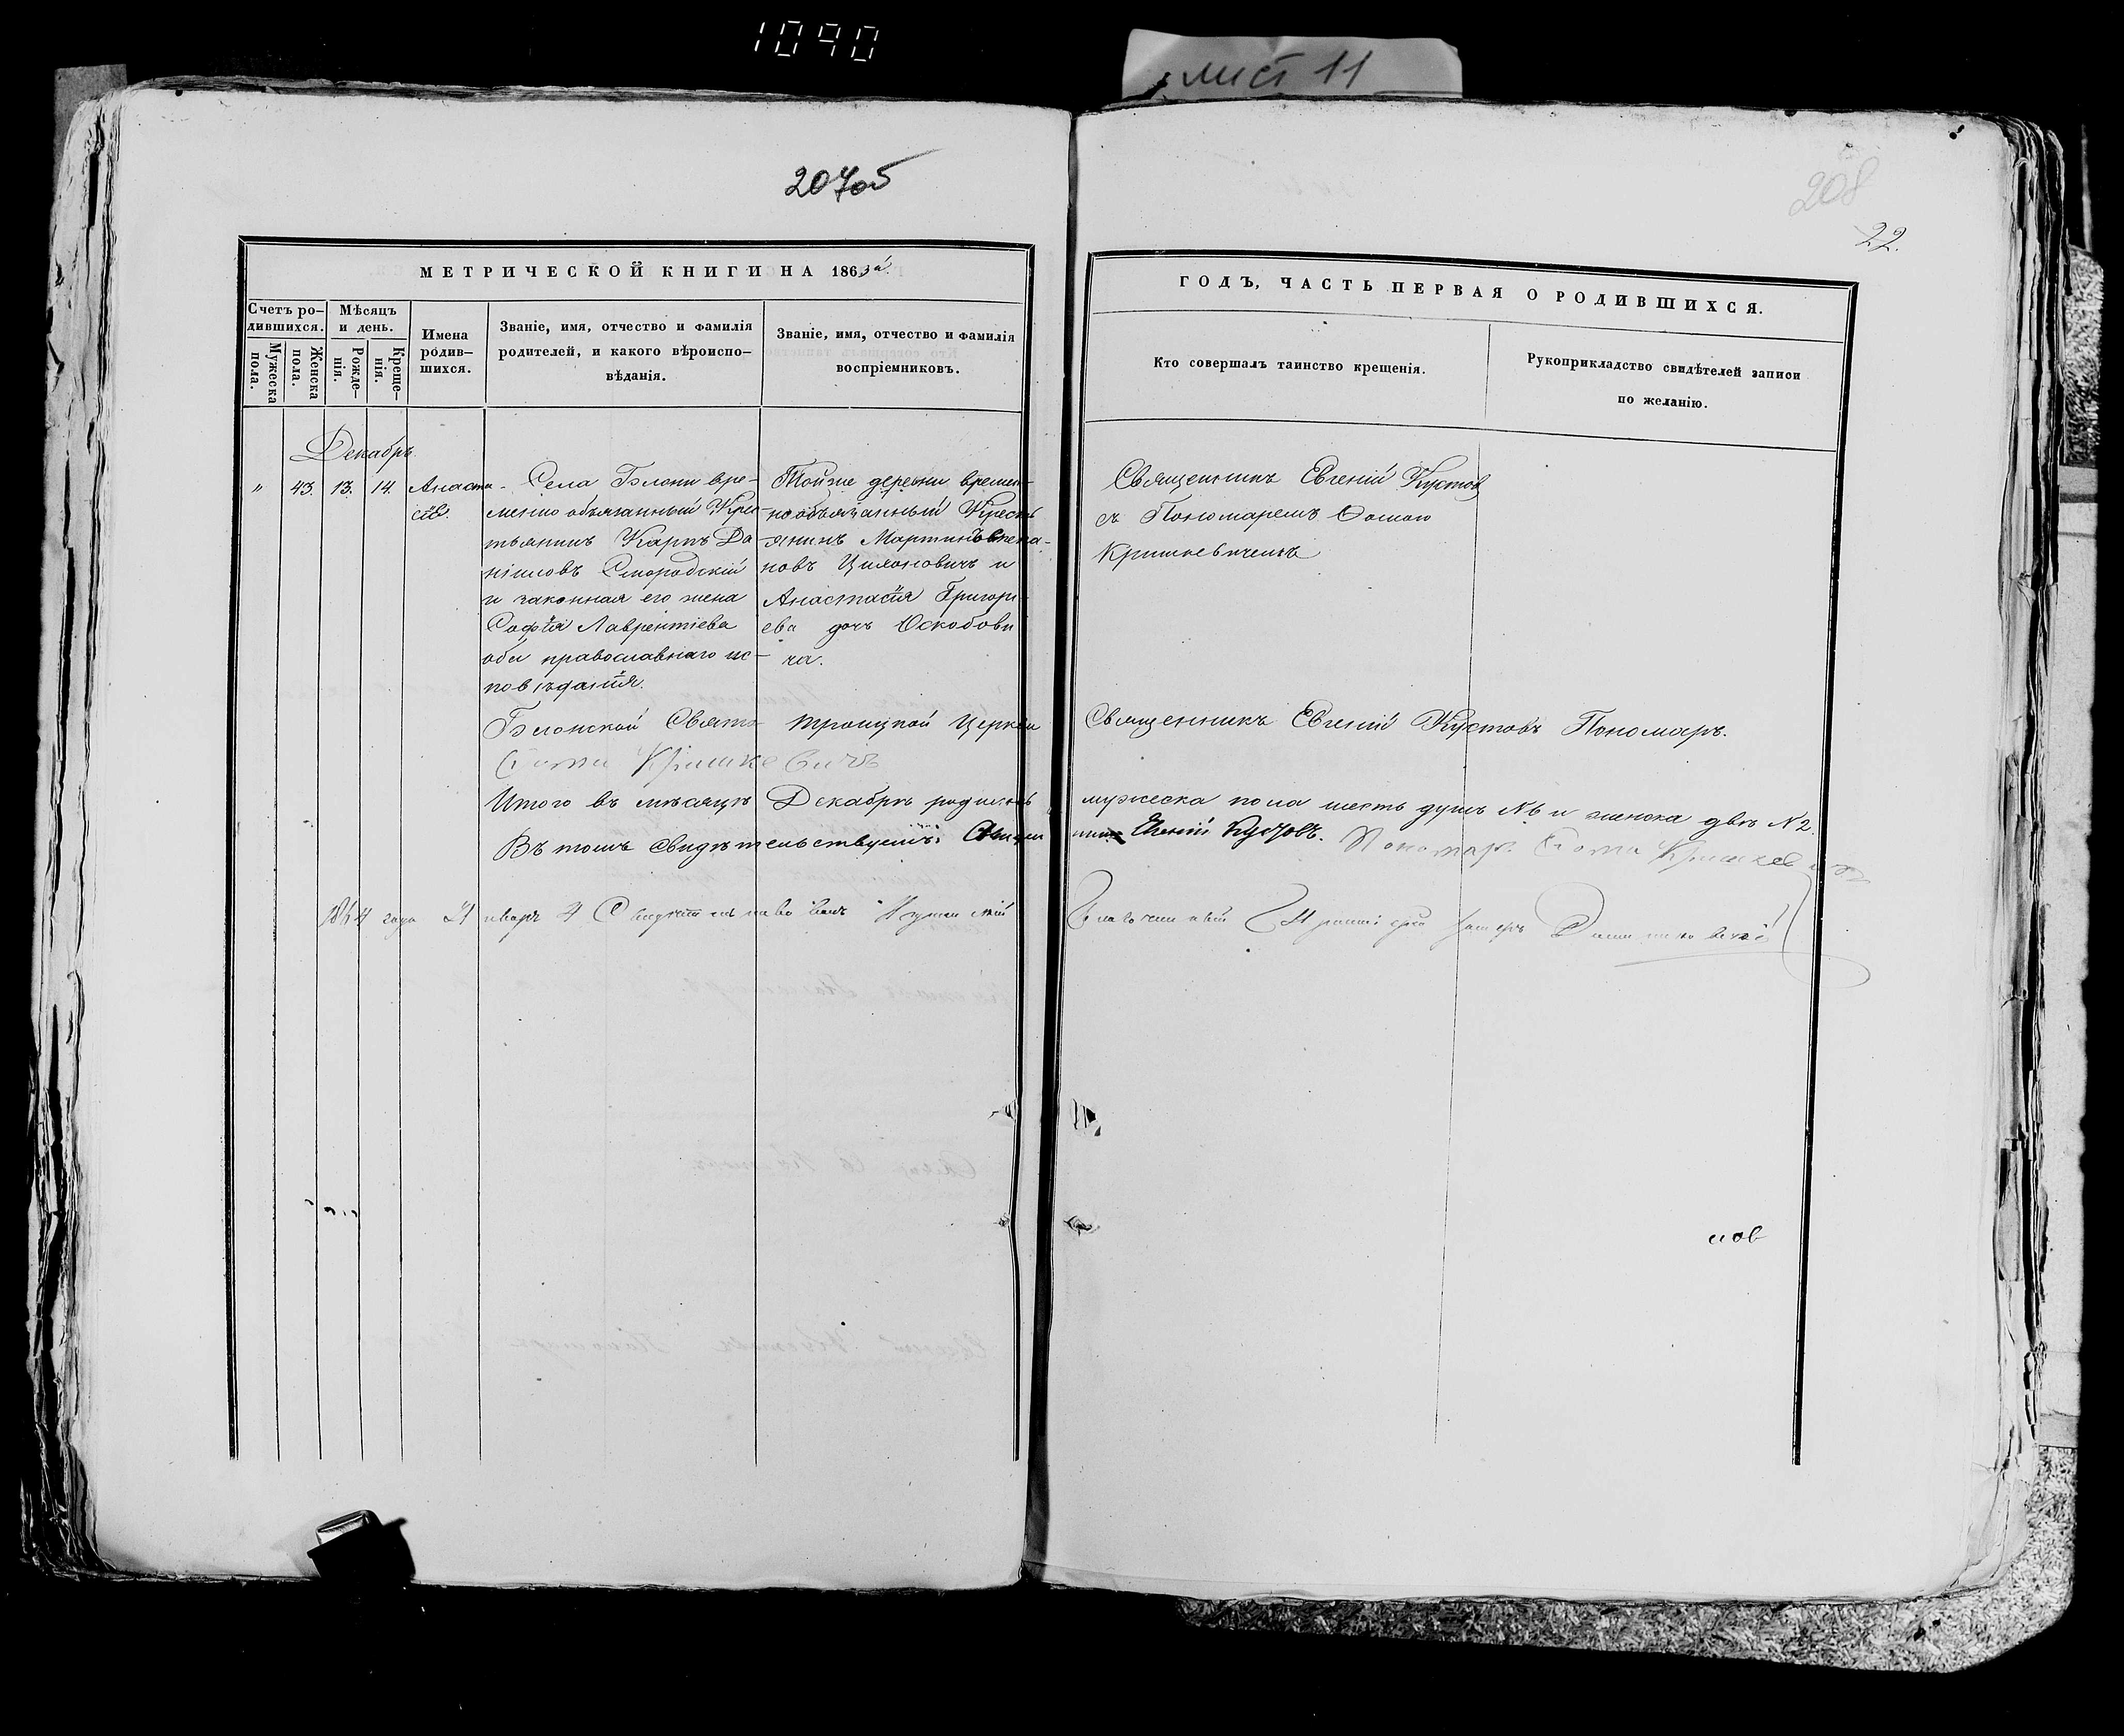 1090
лист 11
207об
208
22.
МЕТРИЧЕСКОЙ КНИГИ НА 1863й.
ГОДЪ, ЧАСТЬ ПЕРВАЯ О РОДИВШИХСЯ.
Счетъ ро-
дившихся.
Мужеска
пола.
Женска
пола.
Мѣсяцъ
и день.
Рожде-
нія.
Креще-
нія.
Имена
родив-
шихся.
Званіе, имя, отчество и фамилія
родителей, и какого вѣроиспо-
вѣданія.
Званіе, имя, отчество и фамилія
воспріемниковъ.
Кто совершалъ таинство крещенія.
Рукоприкладство свидѣтелей записи
по желанію.
Декабрь.
" 43. 13. 14. Анаста-
сія.
Села Блони вре-
менно обязанный Крес-
тьянинъ Карпъ Да-
ніиловъ Смородскій
и законная его жена
Софія Лаврентіева
оба православнаго ис-
повѣданія.
Тойже деревни времен-
нообязанный Кресть
янинъ Мартинъ Степа-
новъ Цимоховичъ и
Анастасія Григорі-
ева дочь
ча.
Священникъ Евгеній Кустов
съ Пономаремъ Ѳомою
Кришкевичемъ
Блонской Свято- Троицкой Церкви Священникъ Евгеній Кустовъ Пономарь.
Ѳома Кришкевичъ
Итого въ мѣсяцѣ Декабрѣ родилось мужеска пола шесть душъ №6 и женска двѣ №2.
Въ томъ свидѣтельствуемъ: Евгеній Кустовъ. Пономарь Ѳома Кришкевичъ
1864 года Января 4 Свидѣтельствовалъ Игуменскій Благочинный Протоіерей
нов